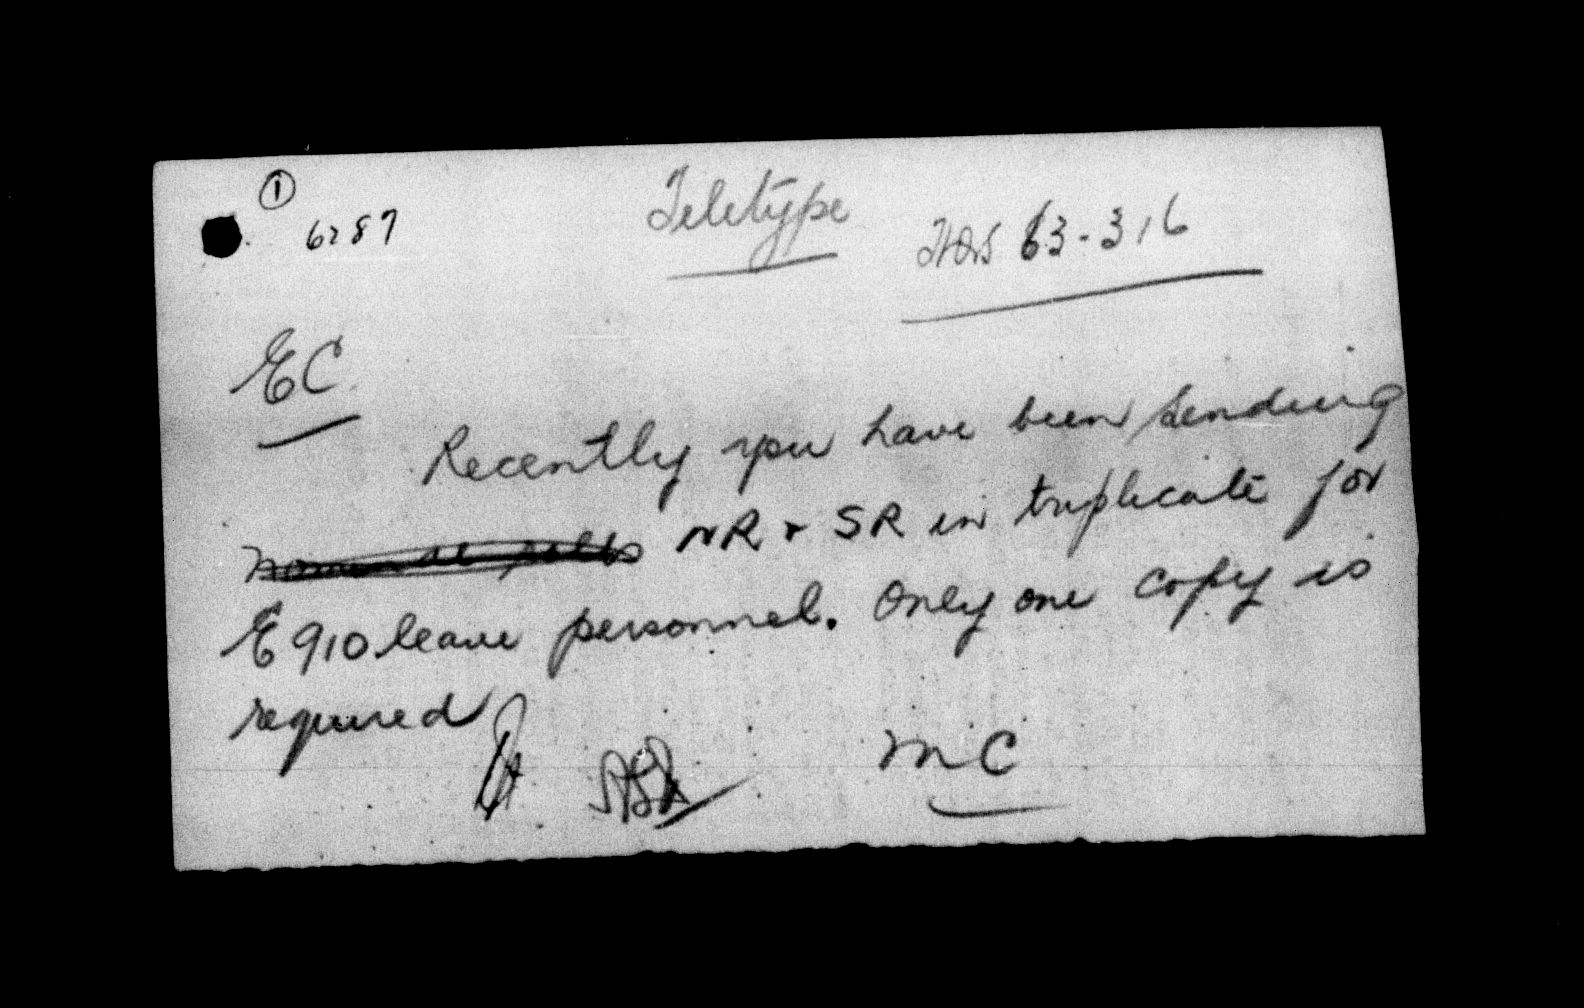 ①
6287
Teletype
HQS 63-316
EC
Recently you have been sending
nominal rolls NR + SR in triplicate for
E 910 leave personnel. Only one copy is
required
MC